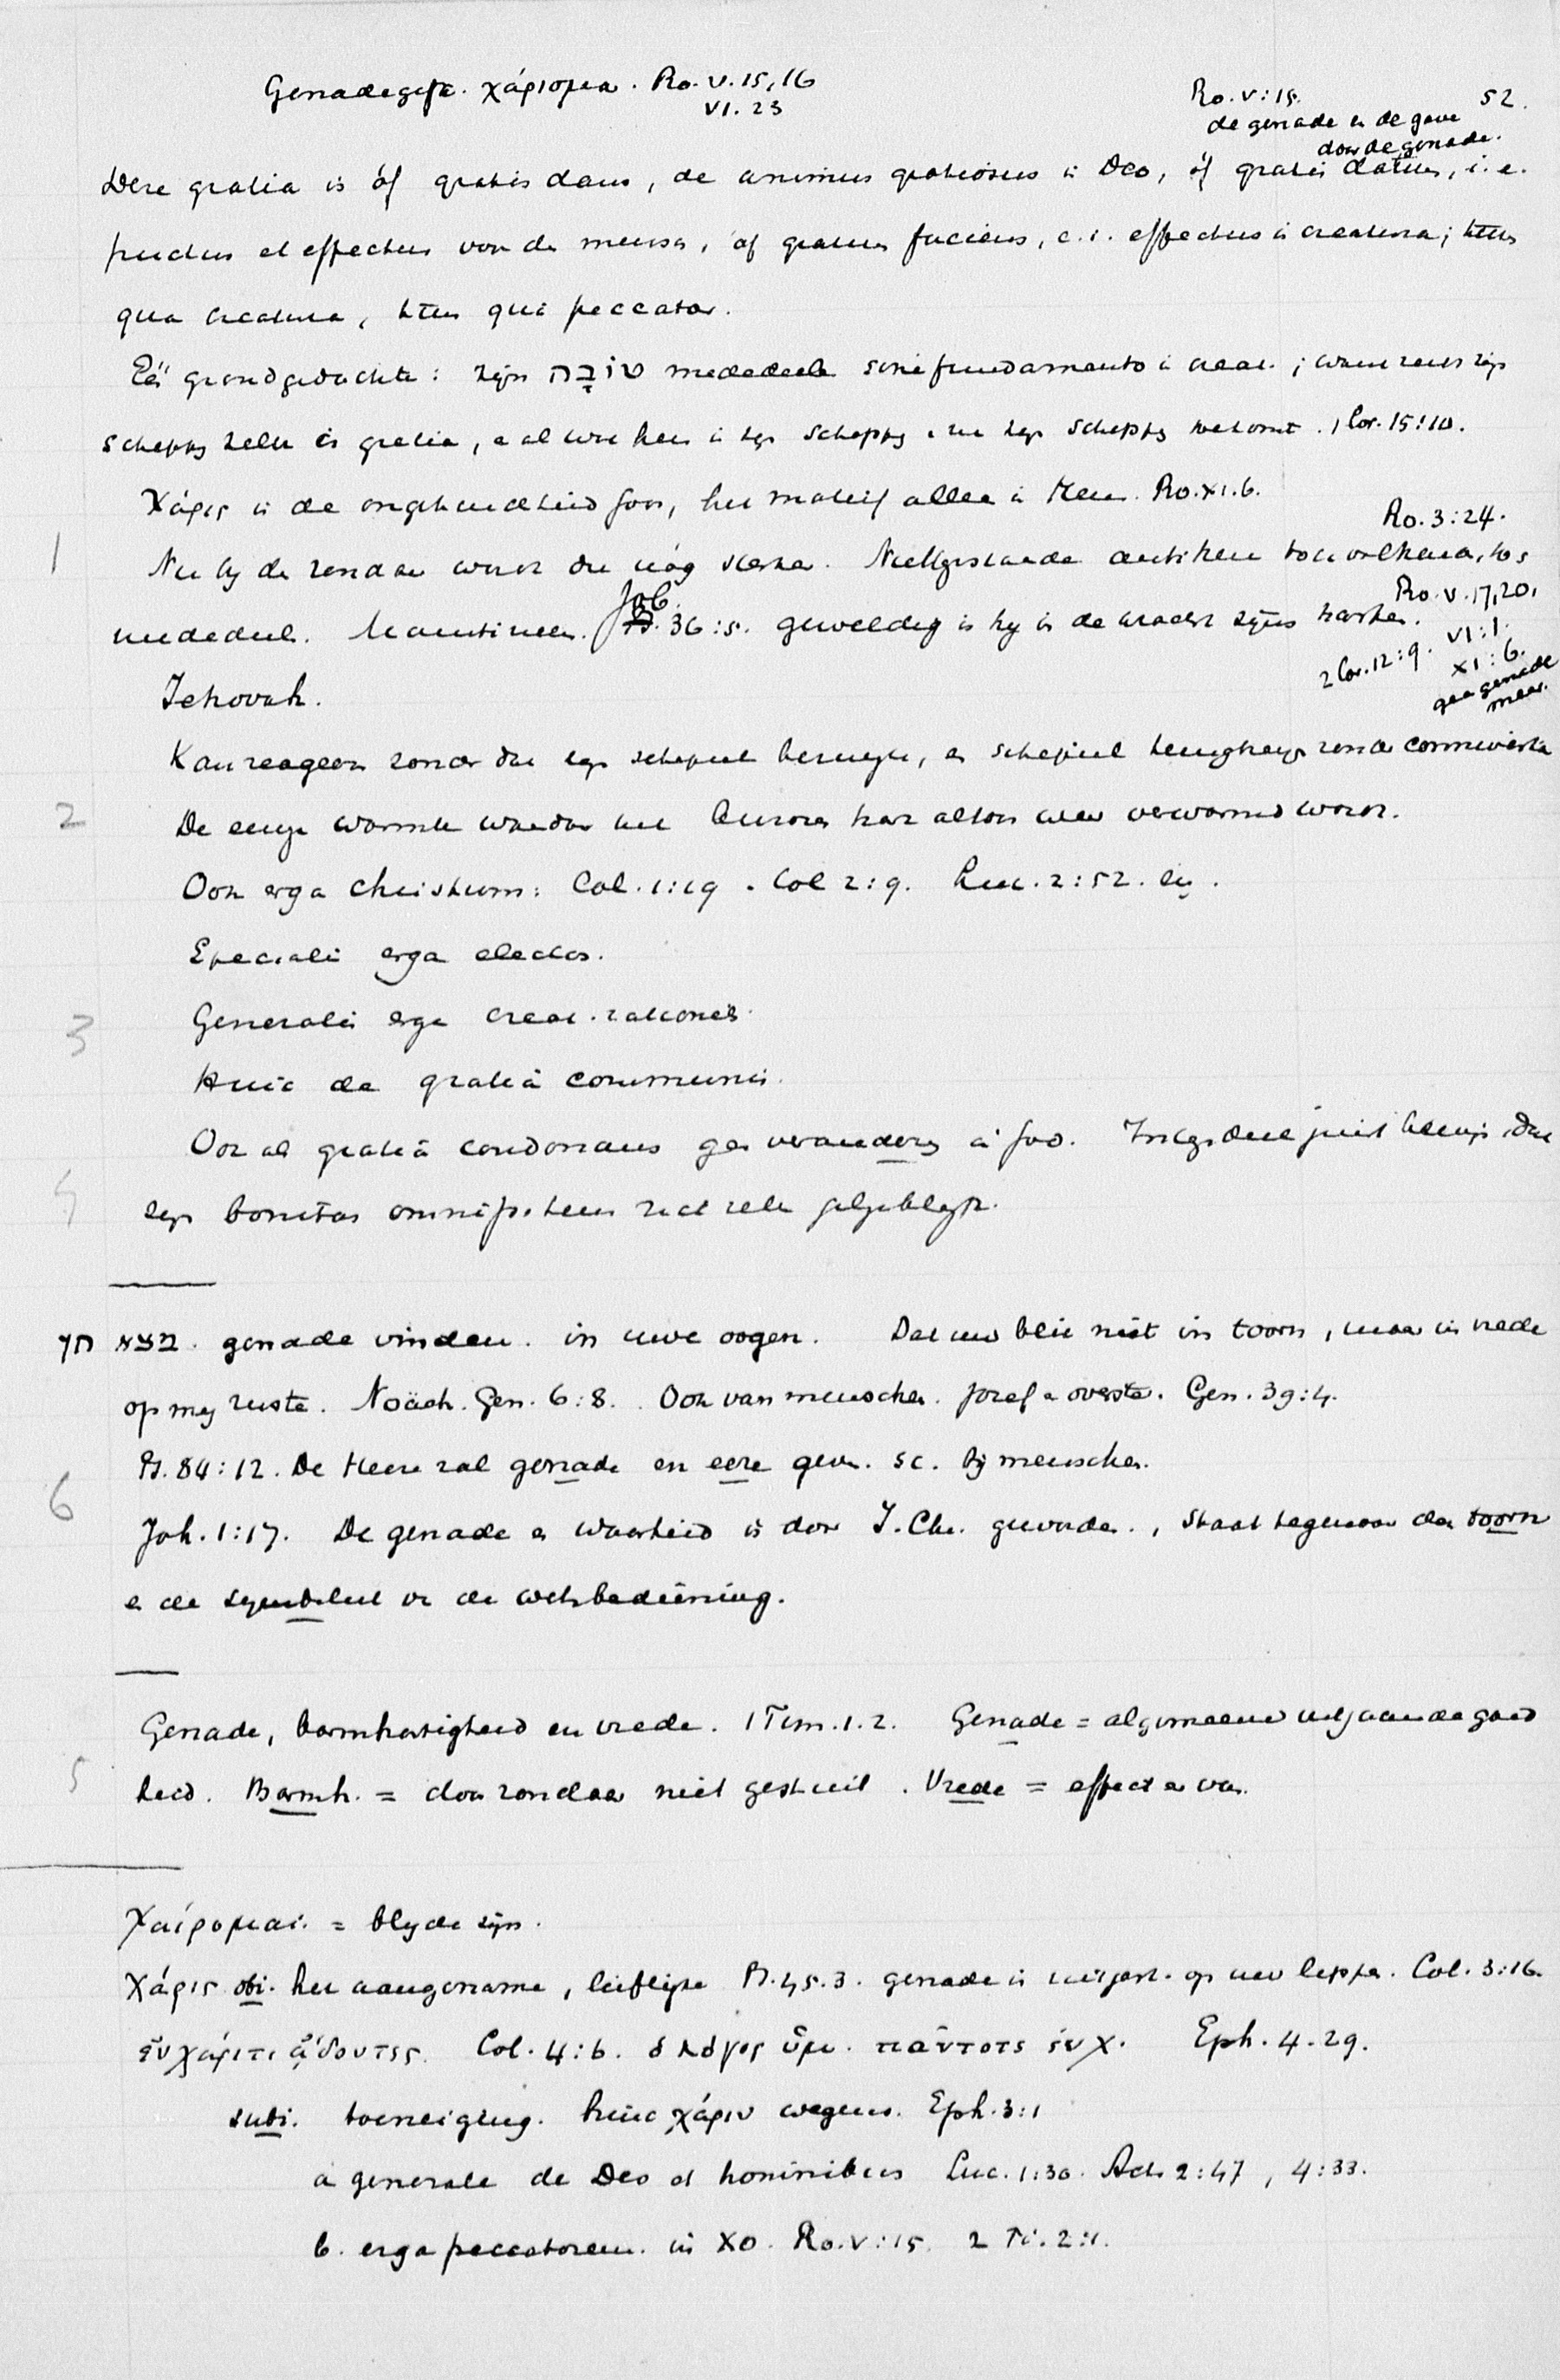 Genadegift. χάρισμα. Ro. V. 15, 16
VI. 23
Ro. V:15. 52.
de genade en de gave
door de genade.
Deze gratia is óf gratis dans, de animus gratiosus in Deo, óf gratis datus, i.e.
fructus et effectus van de mensch, óf gratum faciens, c.i. effectus in creatura; ttm
qua creatura, ttm quâ peccator.
Eén grondgedachte: zijn טוֹבָה mededeeln sine fundamento in creat.; want reeds zijn
schepping zelve is gratia, en al wie hem in zijn schepping toekomt. 1 Cor. 15:10.
Χάρις is de ongehoudenheid Gods, het motief alleen in Hem. Ro. XI. 6.
Ro. 3:24.
1 Nu bij de zondaar wordt dit nóg sterker. Niettegenstaande
Ro. V. 17, 20,
mededeel. Job. 36:5. geweldig is hij in de kracht zijns harten.
VI:1.
2 Cor. 12:9. XI:6.
geen genade
meer.
Jehovah.
Kan reageeren zonder dat zijn schepsel en schepsel
2 De eenige warmte waardoor het altoos weer verwarmd wordt.
Ook erga Christum: Col. 1:19. Col 2:9. Luc. 2:52.
Speciali erga electos.
3 Generali erga creat. rationes.
Huic de gratiâ communi.
Ook al gratiâ condonans geen verandering in God. juist bewijs dat
4 zijn bonitas omnipotens zich zelve gelijkblijft.
חן מצא. genade vinden. in uwe oogen. Dat uw blik niet in toorn, maar in vrede
op mij ruste. Noäch. Gen. 6:8. Ook van menschen. Jozef en overste. Gen. 39:4.
Ps. 84:12. De Heere zal genade en eere geven. sc. bij menschen.
6 Joh. 1:17. De genade en waarheid is door J. Chr. geworden., staat tegenover den toorn
en de symboliek van de wetsbediening.
Genade, barmhartigheid en vrede. 1 Tim. 1. 2. Genade = algemeene uitgaande goed
5 heid. Barmh. = door zondaar niet gestuit. Vrede = effect er van.
Χαίρομαι. = blijde zijn.
Χάρις obi. het aangename, liefelijke Ps. 45. 3. genade is uitgest. op uw lippen. Col. 3:16.
ἐν χάριτι ᾄδοντες. Col. 4:6. ὁ λόγος ὑμ. πάντοτε ἐν χ. Eph. 4. 29.
subi. toeneiging. hinc χάριν wegens. Eph. 3:1
a generale de Deo et hominibus Luc. 1:30. Act. 2:47, 4:33.
b. erga peccatorem. in XO. Ro. V:15. 2 Ti. 2:1.